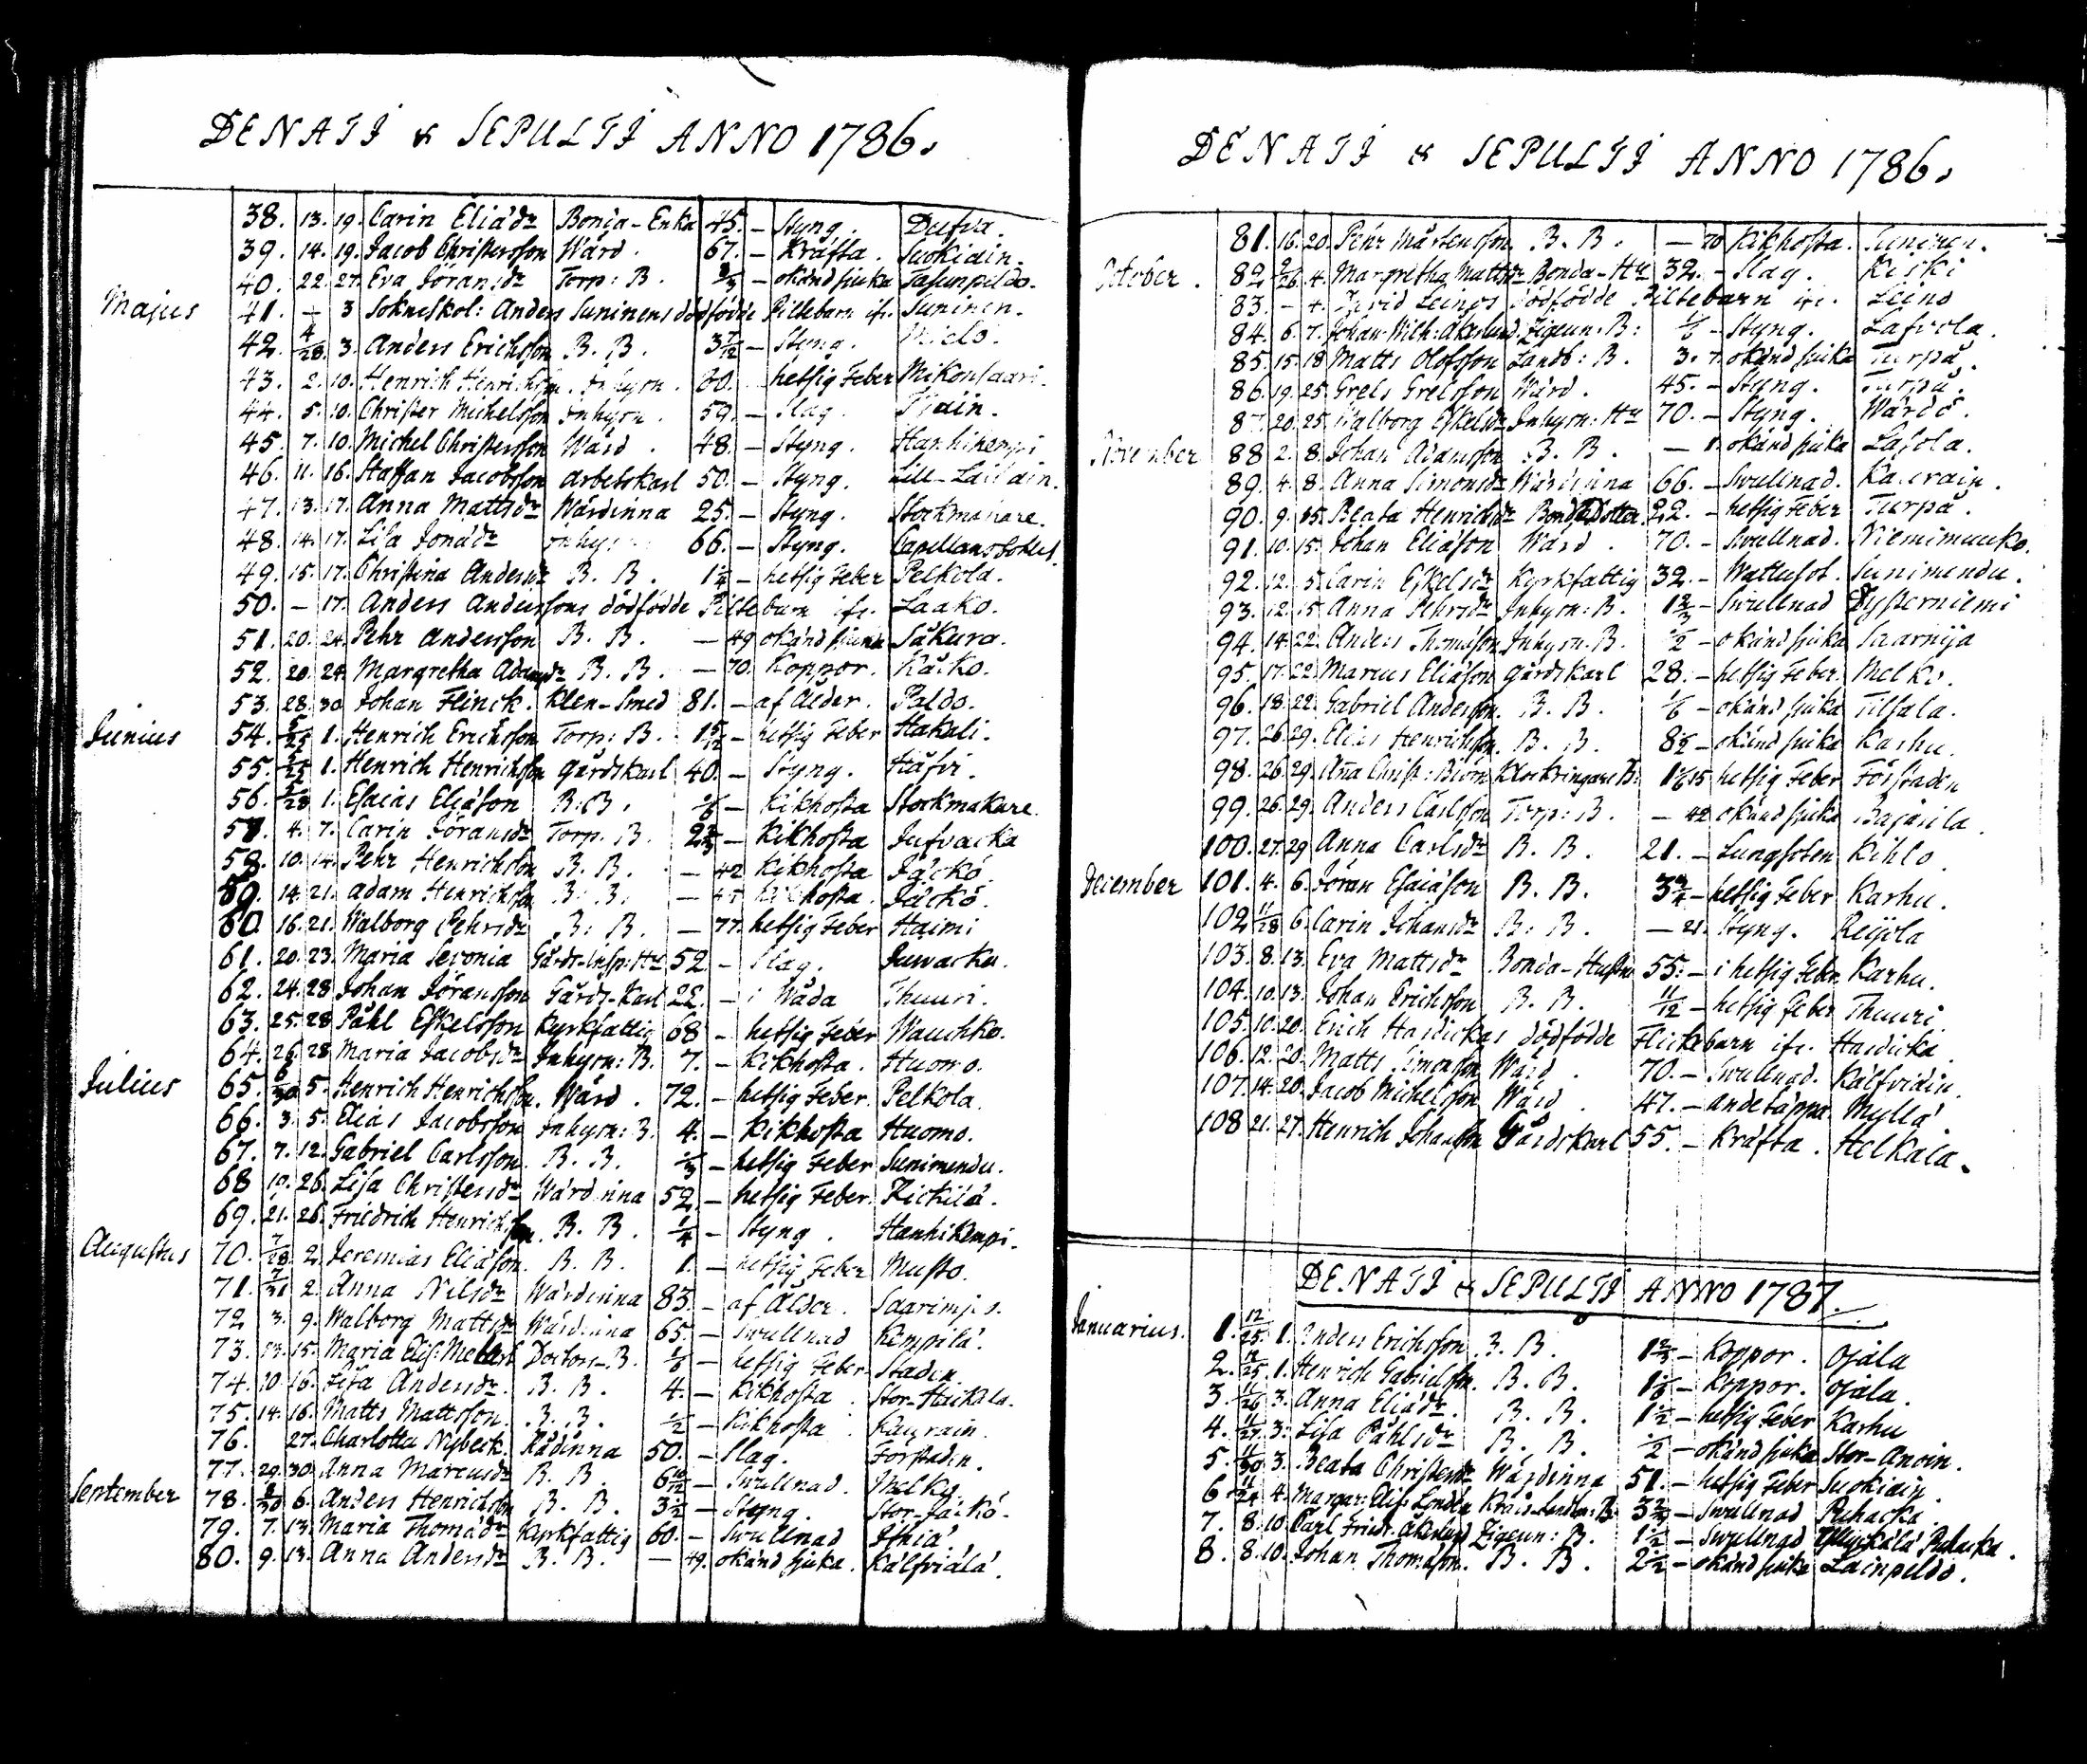 DENATI & SEPULTI ANNO 1786.
38. 13. 19. Carin Eliædr Bonda-Enka 45. - Styng. Dufva.
39. 14. 19. Jacob Christersson Wärd. 67. - Kräfta. Suokiain.
40. 22. 27. Eva Jöransdr Torp: B. 2/3 - okänd sjuka
Majus 41. - 3 Sokneskol: Anders Suninens dödfödde Piltebarn ifr. Suninen.
42. 4/28. 3. Anders Erichsson B. B. 3 7/12 - Styng.
43. 2. 10. Henrich Henrichsson Inhysn. 30. - hetsig Feber Mikonsaari.
44. 5. 10. Christer Michelsson Inhysn. 59. - Slag.
45. 7. 10. Michel Christersson Wärd. 48. - Styng. Hanhikempi
46. 11. 16. Staffan Jacobsson Arbetskarl 50. - Styng. Lill-
47. 13. 17. Anna Mattsdr Wärdinna 25. - Styng. Stockmakare.
48. 14. 17. Lisa Jonædr Inhys: 66. - Styng. Capellansbolet.
49. 15. 17. Christina Andersdr B. B. 1 1/4 - hetsig Feber Pelkola.
50. - 17. Anders Anderssons dödfödde Piltebarn ifr. Laako.
51. 20. 24. Pehr Andersson B. B. - 49 okänd sjuka Säkura.
52. 20. 24. Margretha Adamsdr B. B. - 70. Koppor. Käcko.
53. 28. 30 Johan Flinck. Klen-Smed 81. - af Ålder. Paldo.
Junius 54. 5/25 1. Henrich Erichsson Torp: B. 1 5/12 - hetsig Feber Hakali.
55. 5/25 1. Henrich Henrichsson gårdskarl 40. - Styng. Häfvi.
56. 5/28 1. Esaias Eliæson B. B. - Kikhosta Stockmakare.
57. 4. 7. Carin Jöransdr Torp. B. 2 2/3 - Kikhosta
58. 10. 14. Pehr Henrichsson B. B. - 42 Kikhosta Jäckö.
59. 14. 21. Adam Henrichsson B. B. - Kikhosta. Jäckö.
60. 16. 21. Walborg Pehrsdr B. B. - 77. hetsig Feber Haimi
61. 20. 23. Maria Levonia Gårds-Insp: Hu 52. - Slag.
62. 24. 28 Johan Jöransson Gårds-Karl 22. - i Wåda Thuuri.
63. 25. 28 Påhl Eskelsson Kyrkfattig 68 - hetsig Feber Wauhko.
64. 26. 28 Maria Jacobsdr Inhysn: B. 7. - Kikhosta. Huomo.
Julius 65. 6/30 5. Henrich Henrichsson. Wärd. 72. - hetsig Feber. Pelkola.
66. 3. 5. Elias Jacobsson Inhysn: B. 4. - Kikhosta Huomo.
67. 7. 12. Gabriel Carlsson. B. B. 1/3 - hetsig Feber Sunimendu.
68 19. 26. Lisa Christersdr Wärdinna 52 - hetsig Feber.
69. 21. 26. Friedrich Henrichsson. B. B. 1/4 - Styng. Hanhikempi.
Augustus 70. 7/28. 2. Jeremias Eliæson. B. B. 1. - hetsig Feber Musto.
71. 7/31 2. Anna Nilsdr Wärdinna 83. - af Ålder.
72 3. 9. Walborg Mattsdr Wärdinna 65. - Swullnad Kempilä.
73. 13. 15. Maria Elis: Doctors-B. - hetsig Feber Staden.
74. 10. 16. Lisa Andersdr. B. B. 4. - Kikhosta
75. 14. 16. Matts Mattsson. B. B. 1/2 - Kikhosta Kaurain.
76. 27. Charlotta Nybeck. Rådinna 50. - Slag. Forstaden.
77. 29. 30. Anna Marcusdr B. B. 6 10/12 - Swullnad. Melko.
September 78. 8/30 6. Anders Henrichsson B. B. 3 1/2 - Styng. Stor-Jäckö.
79. 7. 13. Maria Thomædr Kyrkfattig 60. - Swullnad
80. 9. 13. Anna Andersdr B. B. - 49. okänd sjuka. Kälfviälä.
DENATI & SEPULTI ANNO 1786.
81. 16. 20. Pehr Mårtensson. B. B. - 70 Kikhosta. Suninen.
October. 82 9/26. 4. Margretha Mattsdr Bonda-Hu 32. - Slag. Kiski
83. - 4. Leinos dödfödde Piltebarn ifr. Leino
84. 6. 7. Johan Wilh: Åkerlund Zigeun: B: - Styng. Lafvola.
85. 15. 18 Matts Olofsson Landb: B. 3. 7. okänd sjuka Turpå.
86. 19. 25. Grels Grelsson Wärd. 45. - Styng. Turpå.
87. 20. 25. Walborg Eskelsdr Inhysn: Hu 70. - Styng. Wärdö.
November 88 2. 8. Johan Adamsson B. B. - 1. okänd sjuka
89. 4. 8. Anna Simonsdr Wärdinna 66. - Swullnad. Kaurain.
90. 9. 15. Beata Henrichsdr Bondedotter 22. - hetsig Feber Turpå.
91. 10. 15. Johan Eliæson Wärd. 70. - Swullnad. Niemimuuko.
92. 12. 5. Carin Eskelsdr Kyrkfattig 32. - Wattusot. Sunimendu.
93. 12. 15. Anna Pehrsdr Inhysn: B. 1 2/3 - Swullnad Dysterniemi
94. 14. 22. Anders Thomæson Inhysn: B. 1/2 - okänd sjuka Saarnija
95. 17. 22. Marcus Eliæson gårdskarl 28. - hetsig Feber. Melko.
96. 18. 22. Gabriel Andersson. B. B. 1/6 - okänd sjuka Tilsala.
97. 26. 29. Elias Henrichsson. B. B. 8 1/2 - okänd sjuka Karhu.
98. 26. 29. Anna Christ: Klockringare B: hetsig Feber Förstaden
99. 26. 29. Anders Carlsson Torp: B. - 42 okänd sjuka
100. 27. 29 Anna Carlsdr B. B. 21. - Lungsoten Kihlo
December 101. 4. 6. Jöran Esaiæson B. B. 3 3/4 - hetsig Feber Karhu.
102 11/28 6. Carin Johansdr B. B. - 21. Styng. Reijola
103. 8. 13. Eva Mattsdr Bonda-Hustru 55. - i hetsig Feber. Karhu.
104. 10. 13. Johan Erichsson B. B. 11/12 - hetsig Feber Thuuri.
105. 10. 20. Erich Hardickas dödfödde Flickebarn ifr. Hardicka.
106. 12. 20. Matts Simonsson Wärd. 70. - Swullnad. Kälfviäin.
107. 14. 20. Jacob Michelsson Wärd. 47. - andetäppa. Myllä.
108 21. 27. Henrich Johansson Gårdskarl 55. - Kräfta. Helkala.
DENATI & SEPULTI ANNO 1787.
Januarius. 1. 12/25. 1. Anders Erichsson. B. B. 1 2/3 - Koppor. Ojala
2. 12/25. 1. Henrich Gabrielsson. B. B. - Koppor. Ojala.
3 11/26 3. Anna Eliædr. B. B. 1 1/2 - hetsig Feber Karhu
4. 11/27. 3: Lisa Påhlsdr B. B. 1/2 - okänd sjuka Stor-Anoin.
5. 11/30 3. Beata Christersdr Wärdinna 51. - hetsig Feber Suokiain.
6 11/24 4. Margar: Elis: Londén B. 3 2/3 - Swullnad Puhacka.
7. 8. 10. Carl Friedr. Åkerlund Zigeun: B. 1 1/2 - Swullnad Puhacka.
8. 8. 10. Johan Thomæson. B. B. 2 1/2 - okänd sjuka Lainpeldo.